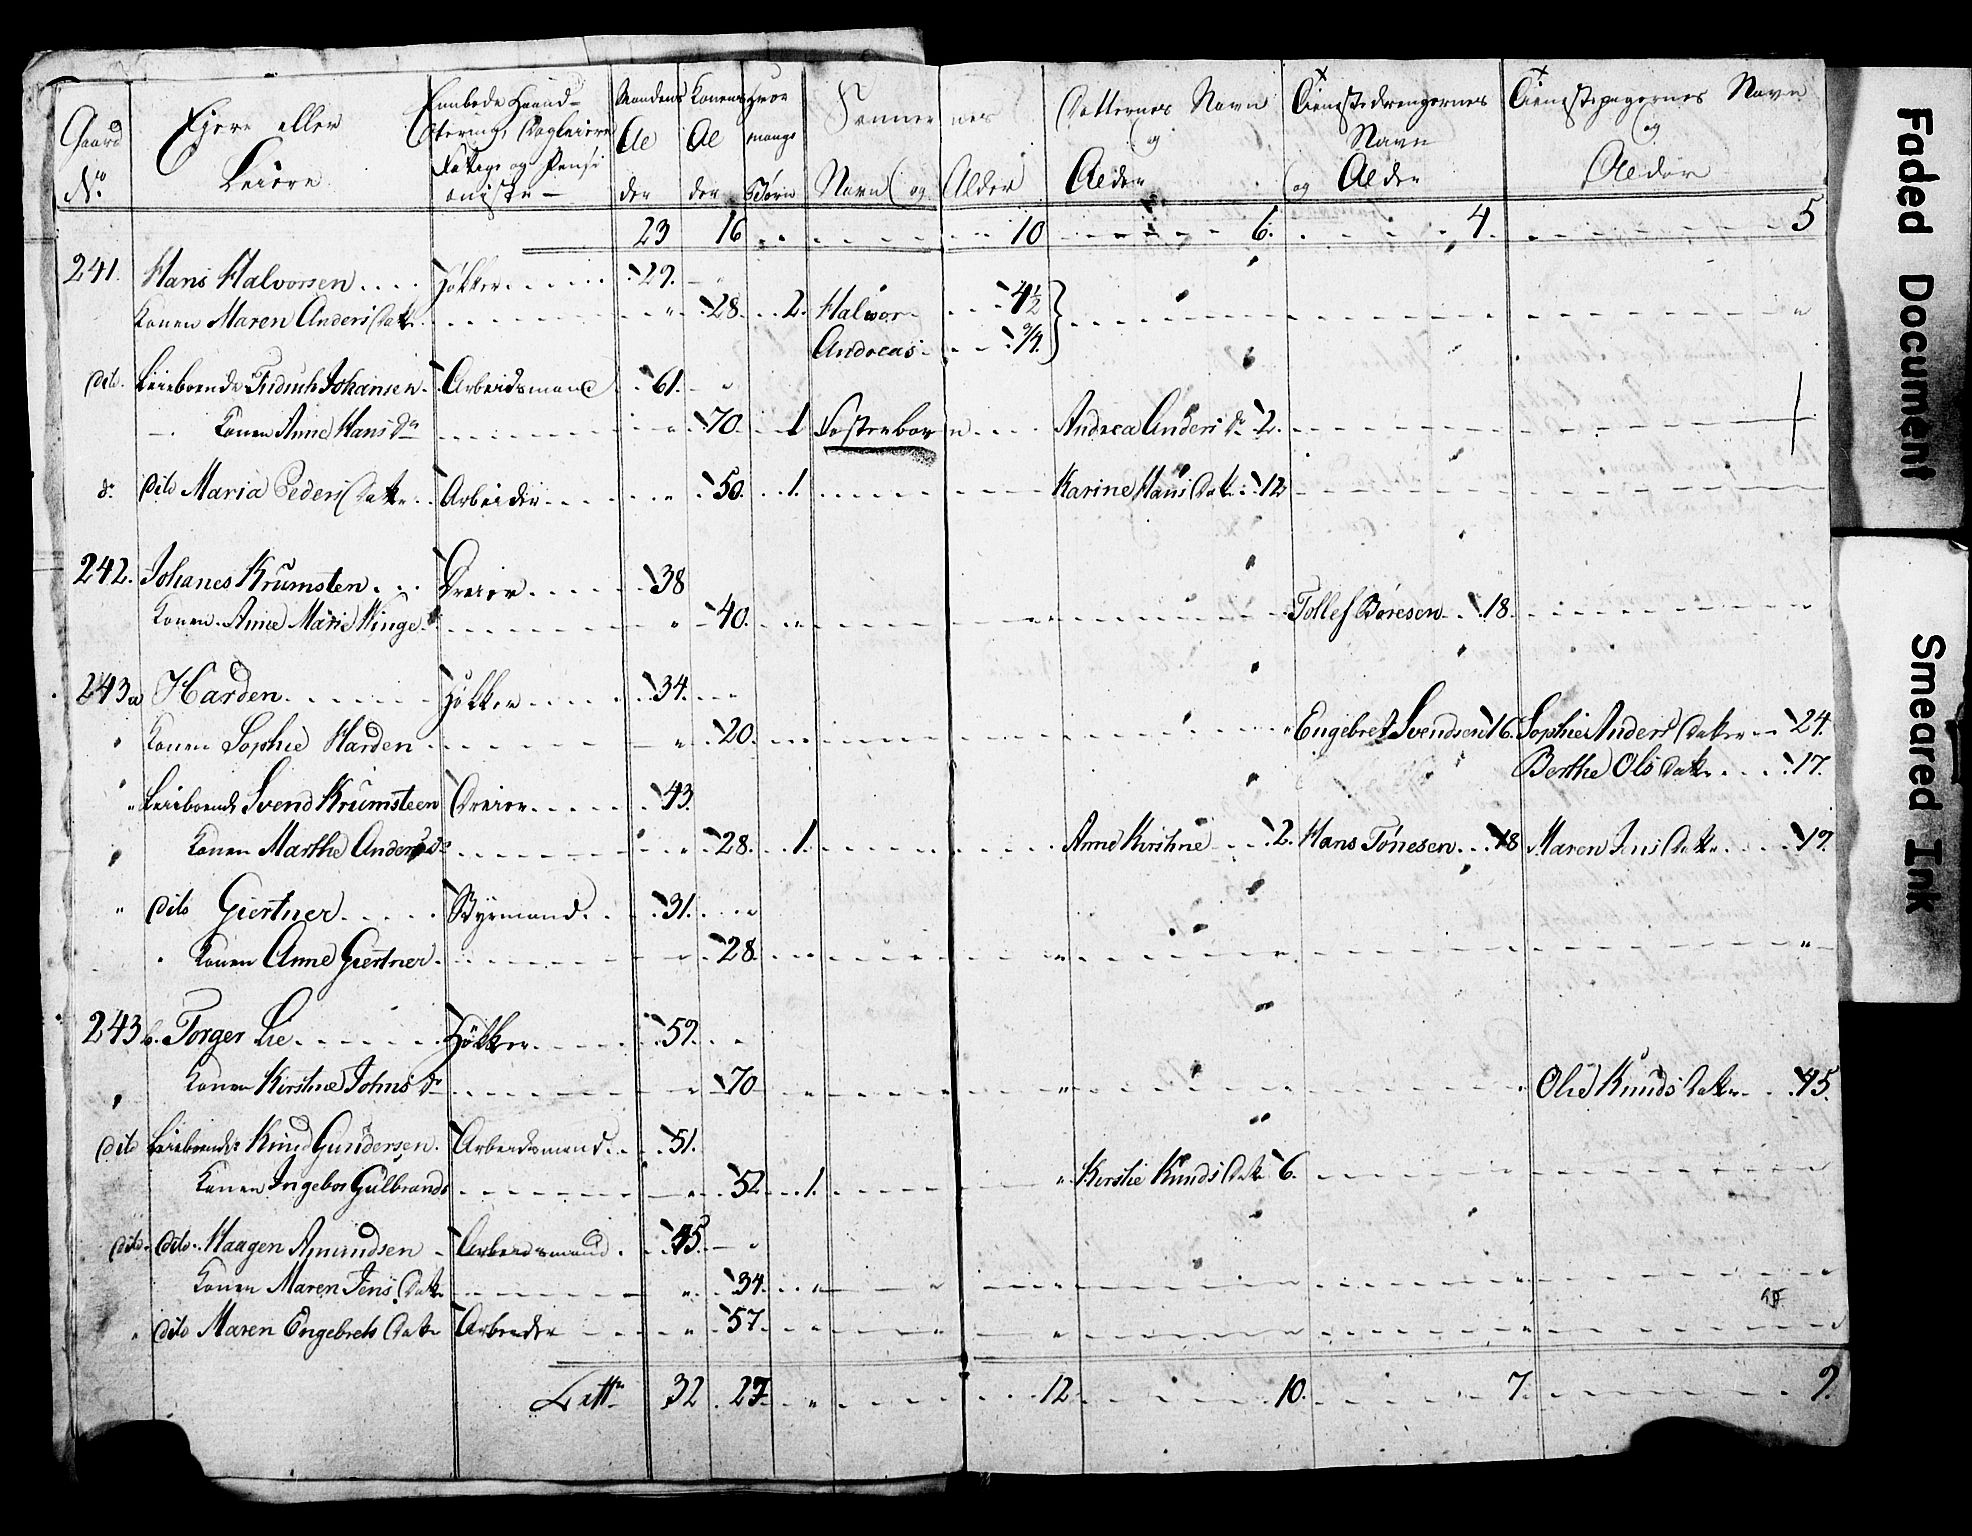 Gaard No | Ejere eller Leiere | Haand- | Mandens Alder | Konens Alder | Hvor mange Børn | Sønnernes Navn og Alder | Døtternes Navn og Alder | Tienestedrengernes Navn og Alder | Tienestepigernes Navn og Alder
23 16 10 6. 4. 5
241. Hans Halvorsen Høkker 29.
Konen Maren Anders Datr 28. 2. Halvor 4½
Andreas 9/4.
dito. Leieboende Fridrich Johansen Arbeidsmand 61.
Konen Anne Hans Dr 70. 1 Fosterbarn Andrea Anders Dr 2.
do dito Maria Peders Datr Arbeider 50. 1. Karine Hans Datr 12
242. Johanes Krumsten Dreier 38
Konen Anne Marie Winge 40. Tollef Boresen 18.
243a Harden Høkker 34.
Konen Sophie Harden 20. Engebret Svendsen 16. Sophie Anders Datter 24.
Berthe Ols Datr 17.
" Leieboende Svend Krumsteen Dreier 43.
Konen Marthe Anders Dr 28. 1. Anne Kirstine 2. Hans Tønesen 18 Maren Jens Datr 19.
" dito Giertner Styrmand 31.
Konen Anne Giertner 28.
243 b. Torger Lie Høkker 59.
Konen Kirstine Johns Dr 70 Olie Knuds Datr 45.
dito Leieboende Knud Gundersen Arbeidsmand 51.
Konen Ingebor Gulbrands 52 1. Kirstie Knuds Datr 6.
dito dito Haagen Amundsen Arbeidsmand 45.
Konen Maren Jens Datr 34.
" dito Maren Engebrets Datr Arbeider 57.
Latr 32 27 12 10. 7. 9.
Faded Document
Smeared Ink